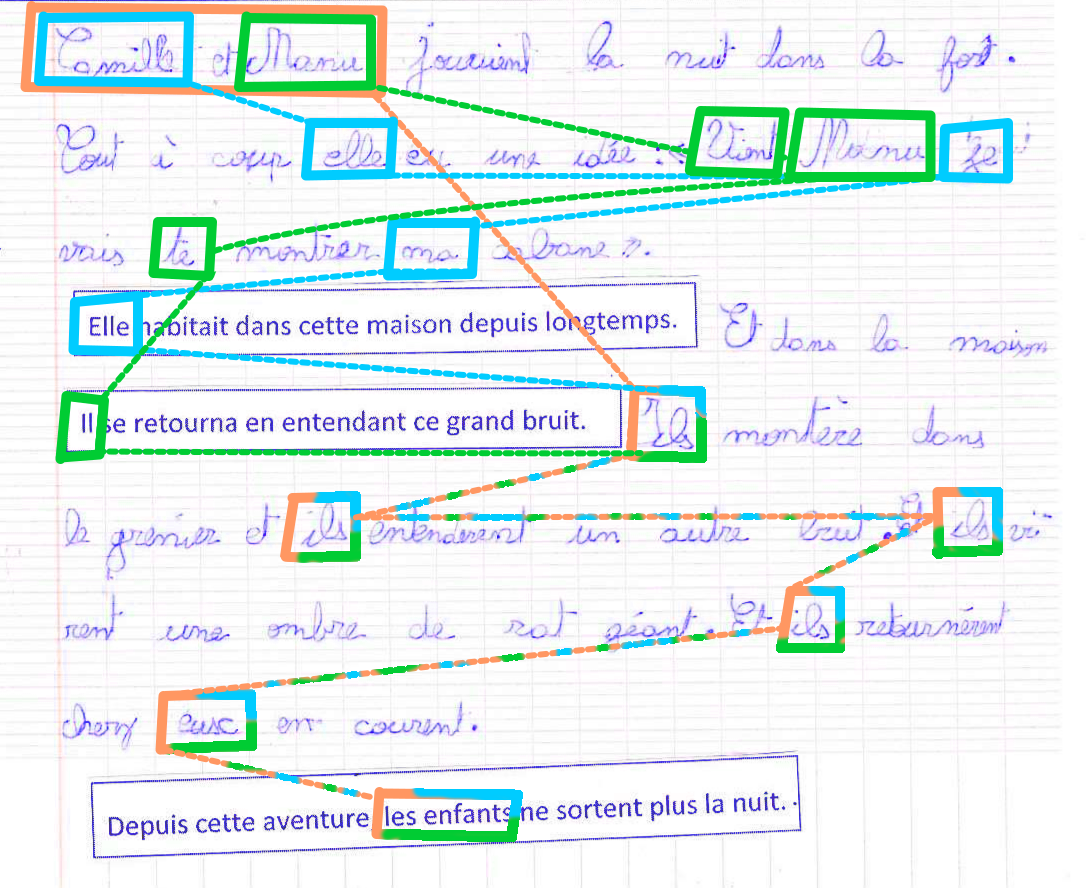 Camille et Manu jouaient la nuit dans la forêt.
Tout à coup elle eu une idée : « Vient Manu je
vais te montrer ma cabane ».
Elle habitait dans cette maison depuis longtemps. Et dans la maison
Il se retourna en entendant ce grand bruit. Ils montère dans
le grenier et ils entenderent un autre bruit. Et ils vi-
rent une ombre de rat géant. Et ils retournèrent
chez eusc en courent.
Depuis cette aventure les enfants ne sortent plus la nuit.